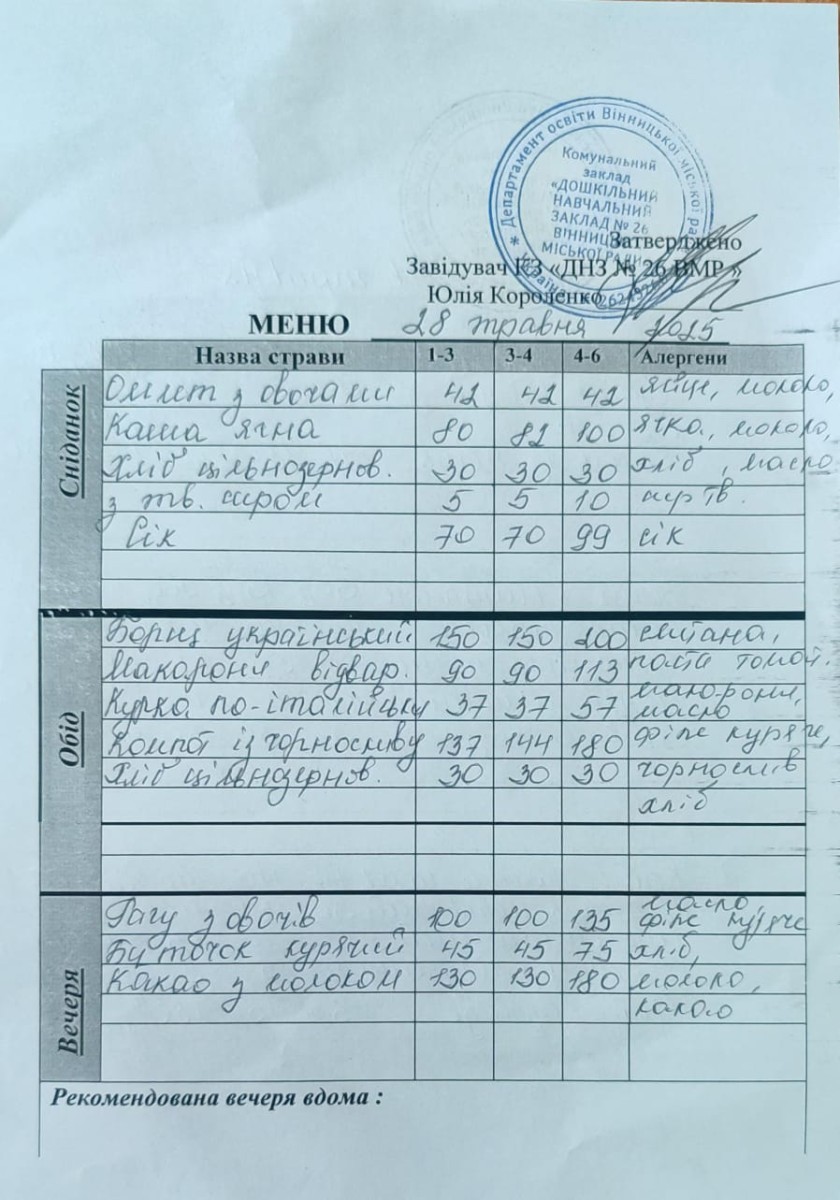 Департамент освіти Вінницької міської ради
Комунальний
заклад
«ДОШКІЛЬНИЙ
НАВЧАЛЬНИЙ
ЗАКЛАД № 26
ВІННИЦЬКОЇ
МІСЬКОЇ РАДИ
Україна
Затверджено
Завідувач КЗ «ДНЗ № 26 ВМР »
Юлія Короленко
МЕНЮ 28 травня 2025
Назва страви 1-3 3-4 4-6 Алергени
Сніданок
Омлет з овочами 42 42 42 яйце, молоко,
Каша ячна 80 82 100 ячка, молоко,
Хліб цільнозернов. 30 30 30 хліб, масло
з тв. сиром 5 5 10 сир тв.
Сік 70 70 99 сік
Обід
Борщ український 150 150 200 сметана,
Макарони відвар. 90 90 113 паста томат,
Курка по-італійськи 37 37 57 макорони, масло
Компот із чорносливу 137 144 180 філе куряче,
Хліб цільнозернов. 30 30 30 чорнослив
хліб
Вечеря
Рагу з овочів 100 100 135 масло, філе куряче
Биточок курячий 45 45 75 хліб,
Какао з молоком 130 130 180 молоко,
какао
Рекомендована вечеря вдома :